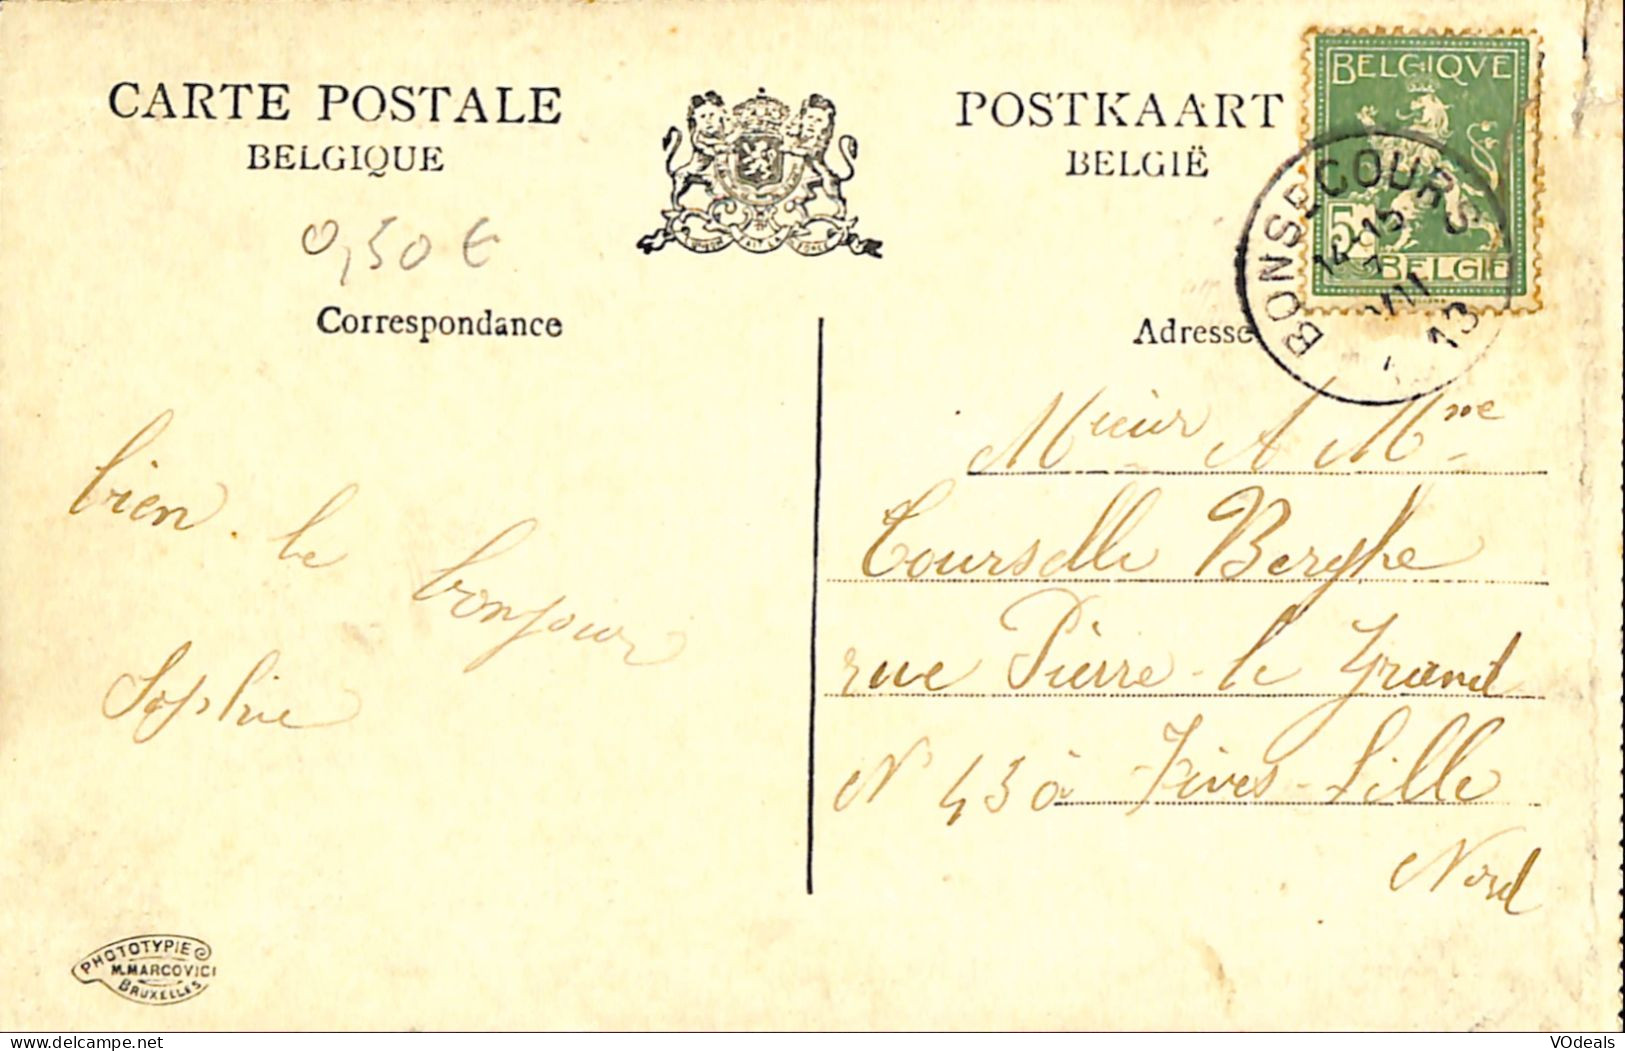 CARTE POSTALE
BELGIQUE
POSTKAART
BELGIË
BELGIQVE
5
BELGIË
BONSECOURS
14-15
7
VIII
13
0,50 €
Correspondance
Adresse
bien le bonjour
Sophie
Mieur A Mme
Courselle Berghe
rue Pierre-le Grand
N° 43 à Fives-Lille
Nord
PHOTOTYPIE
M. MARCOVICI
BRUXELLES
delcampe.net
VOdeals